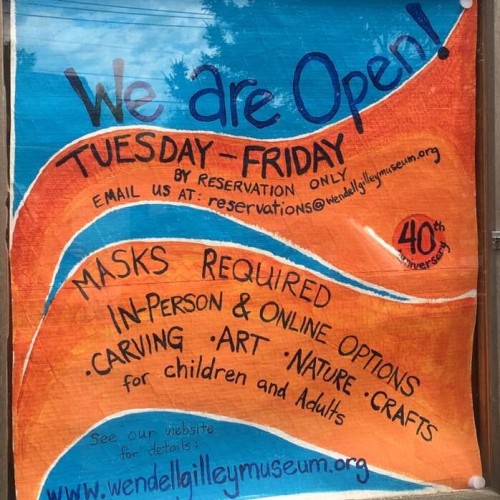 We are Open!
TUESDAY - FRIDAY
BY RESERVATION ONLY
EMAIL US AT: reservations@wendellgilleymuseum.org
40th
anniversery
MASKS REQUIRED
IN-PERSON & ONLINE OPTIONS
·CARVING ·ART ·NATURE ·CRAFTS
for children and Adults
See our website
for details:
www.wendellgilleymuseum.org